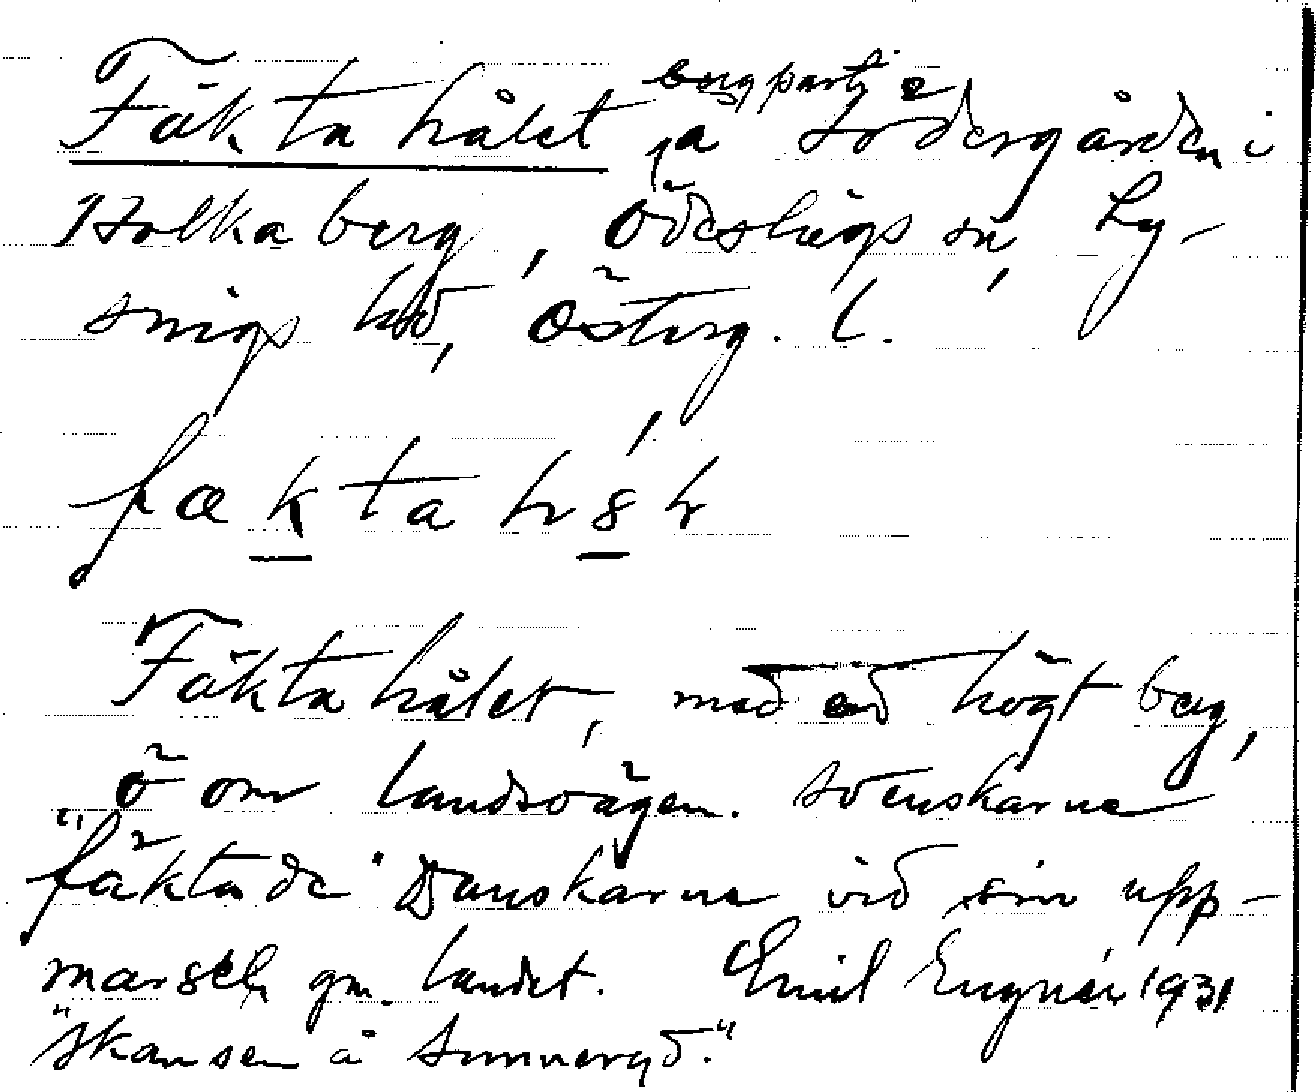 bergparti
Fäktahålet, å Södergården i
Holkaberg, Ödeshögs sn, Ly-
sings hd, Österg. l.
Fäktahålet, med ett högt berg,
ö om landsvägen. Svenskarne
"fäktade" Danskarne vid sin upp-
marsch gm. landet. Emil Engnér 1931
"Skansen å Sunneryd."